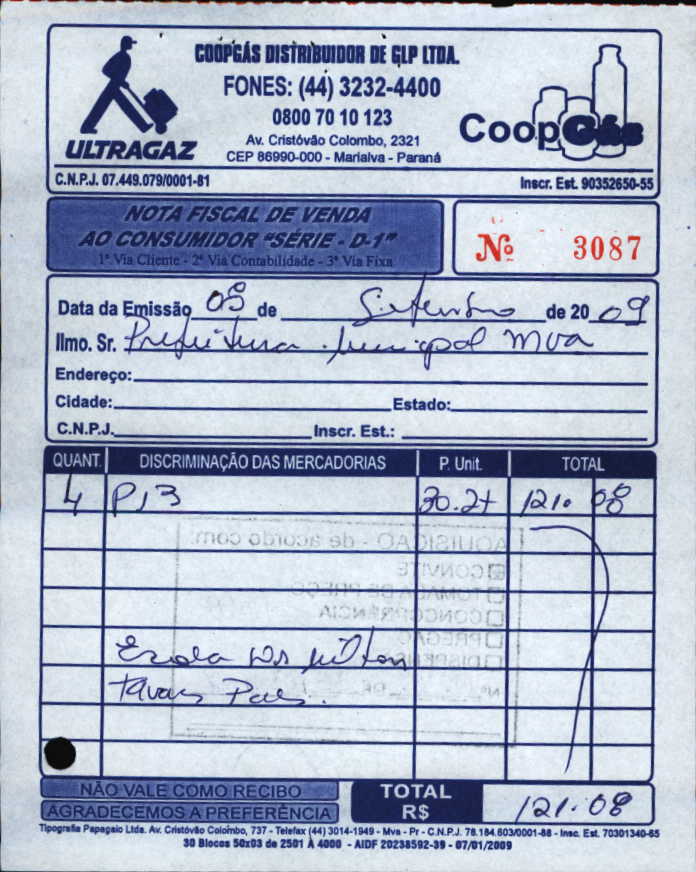 COOPGÁS DISTRIBUIDOR DE GLP LTDA.
FONES: (44) 3232-4400
0800 70 10 123
Av. Cristóvão Colombo, 2321
CEP 86990-000 - Marialva - Paraná
ULTRAGAZ
CoopGás
C.N.P.J. 07.449.079/0001-81
Inscr. Est. 90352650-55
NOTA FISCAL DE VENDA
AO CONSUMIDOR "SÉRIE - D-1"
1ª Via Cliente - 2ª Via Contabilidade - 3ª Via Fixa
Nº 3087
Data da Emissão 08 de Setembro de 2009
Ilmo. Sr. Prefeitura Municipal Mva
Endereço:
Cidade: Estado:
C.N.P.J. Inscr. Est.:
QUANT. DISCRIMINAÇÃO DAS MERCADORIAS P. Unit. TOTAL
4 P13 30.27 121.08
AQUISIÇÃO - de acordo com:
CONVITE
TOMADA DE PREÇO
CONCORRÊNCIA
PREGÃO
DISPENSA
Nº DE
Escola Milton
Tavares Paes.
NÃO VALE COMO RECIBO
AGRADECEMOS A PREFERÊNCIA
TOTAL R$ 121.08
Tipografia Papagaio Ltda. Av. Cristóvão Colombo, 737 - Telefax (44) 3014-1949 - Mva - Pr - C.N.P.J. 78.184.603/0001-88 - Insc. Est. 70301340-65
30 Blocos 50x03 de 2501 À 4000 - AIDF 20238592-39 - 07/01/2009